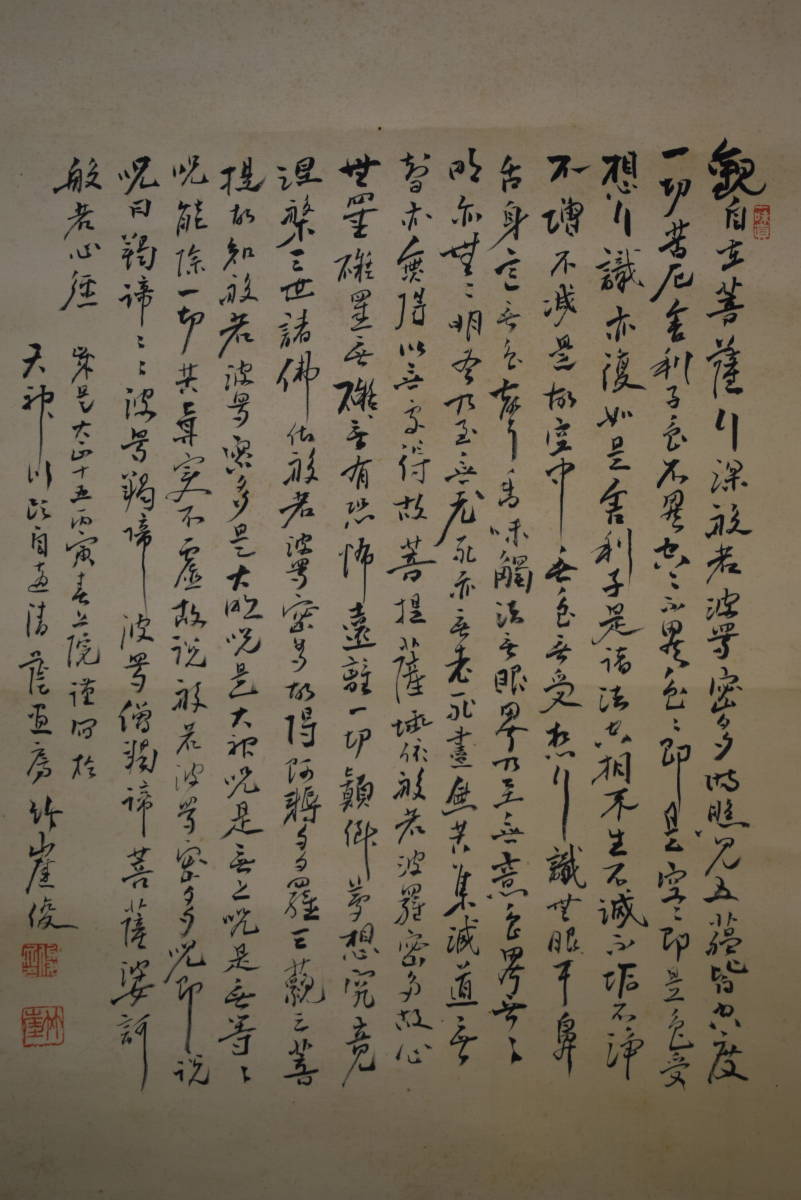 觀自在菩薩行深般若波羅密多時照見五蘊皆空度
一切苦厄舍利子色不異空々不異色々即是空々即是色受
想行識亦復如是舍利子是諸法空相不生不滅不垢不淨
不增不減是故空中無色無受想行識無眼耳鼻
舌身意無色聲香味觸法無眼界乃至無意色界無々
明亦無々明盡乃至無老死亦無老死盡無苦集滅道無
智亦無得以無所得故菩提薩埵依般若波羅密多故心
無罣礙罣無礙無有恐怖遠離一切顛倒夢想究竟
涅槃三世諸佛依般若波羅密多故得阿耨多羅三藐三菩
提故知般若波羅密多是大明呪是大神呪是無上呪是無等々
呪能除一切其真実不虛故說般若波羅密多呪即説
呪曰羯諦々々波羅羯諦波羅僧羯諦菩薩娑訶
般若心經
大正十五丙寅春 院謹写於
天神 自 清蔭 房竹崖俊
竹崖